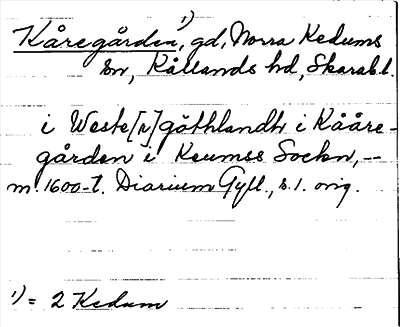 Kåregården¹⁾, gd, Norra Kedums
sn, Kållands hd, Skarab.l.
i Weste[r]göthlandh i Kååre-
gården i Keumss Sockn, --
m. 1600-t. Diarium Gyll., s. 1. orig.
¹⁾ = 2 Kedum